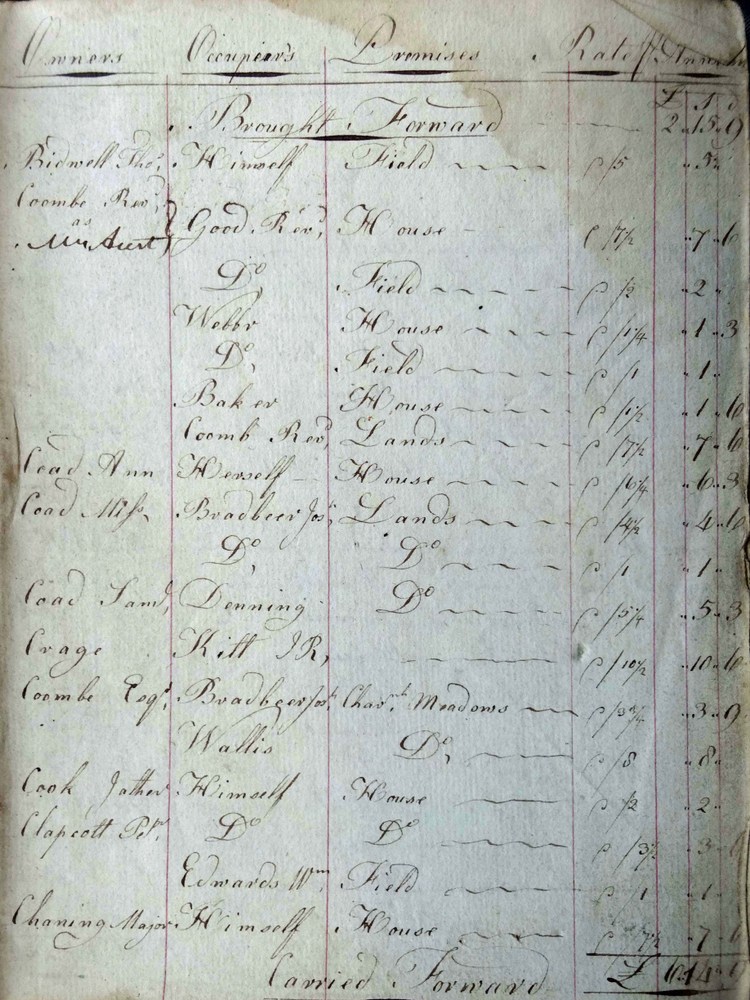 Owners Occupiers Premises Rate Annum
£ s d
Brought Forward 2 15 9
Bidwell Thos. Himself Field @ /5 5
Coombe Revd.
as Good Revd. House @ /7½ 7 6
Mr Aust
Do. Field @ /2 2
Webbr House @ /1¼ 1 3
Do. Field @ /1 1
Baker House @ /1½ 1 6
Coomb Revd. Lands @ /7½ 7 6
Coad Ann Herself House @ /6¼ 6 3
Coad Miss. Bradbeer Jos. Lands @ /4½ 4 6
Do. Do @ /1 1
Coad Saml. Denning Do @ /5¼ 5 3
Crage Kitt JR, @ /10½ 10 6
Coombe Esqr. Bradbeer Jos. Meadows @ /3¾ 3 9
Wallis Do. @ /8 8
Cook Father Himself House @ /2 2
Clapcott Petr. Do Do @ /3½ 3
Edwards Wm. Field @ /1 1
Chaning Major Himself House @ /7½ 7 6
Carried Forward £ 6 14